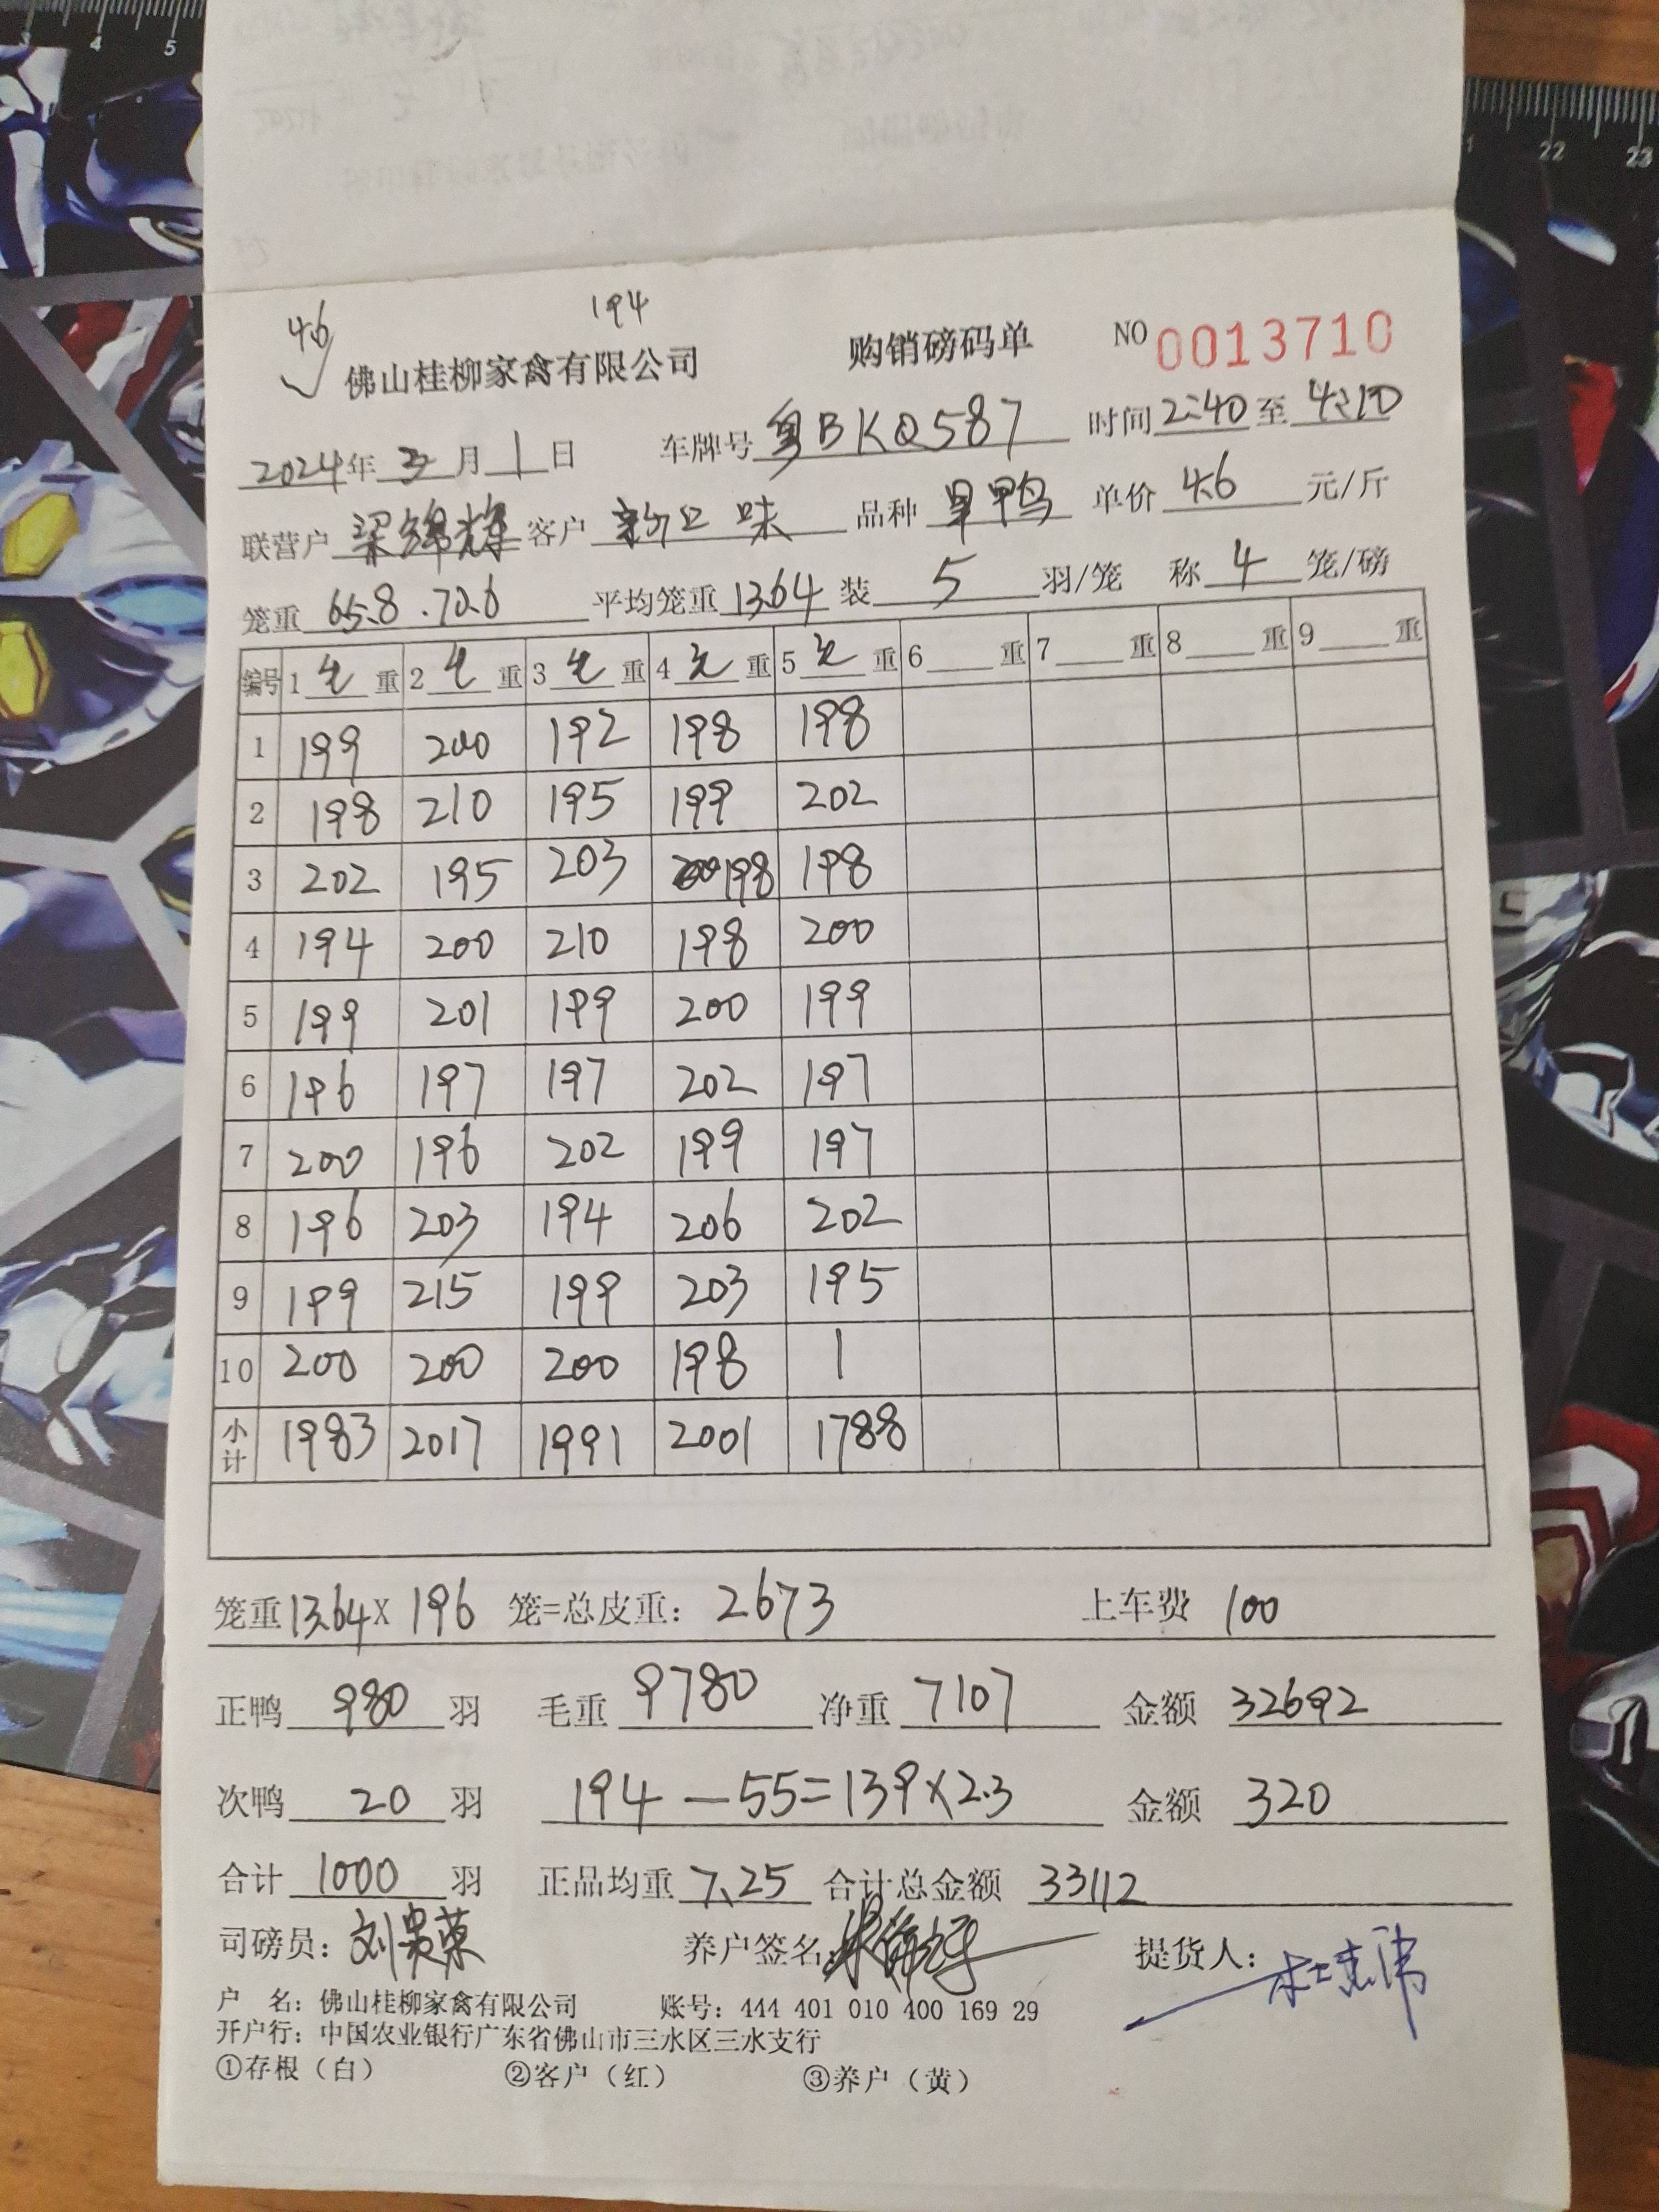 4.6 194
佛山桂柳家禽有限公司 购销磅码单 NO 0013710
2024年 3 月 1 日 车牌号 粤BKQ587 时间 2:40 至 4:10
联营户 梁锦辉 客户 新口味 品种 旱鸭 单价 4.6 元/斤
笼重 65.8 .70.6 平均笼重 13.64 装 5 羽/笼 称 4 笼/磅
编号 1 毛 重 2 毛 重 3 毛 重 4 毛 重 5 毛 重 6 重 7 重 8 重 9 重
1 199 200 192 198 198
2 198 210 195 199 202
3 202 195 203 198 198
4 194 200 210 198 200
5 199 201 199 200 199
6 196 197 197 202 197
7 200 196 202 199 197
8 196 203 194 206 202
9 199 215 199 203 195
10 200 200 200 198 1
小计 1983 2017 1991 2001 1788
笼重 13.64 X 196 笼=总皮重: 2673 上车费 100
正鸭 980 羽 毛重 9780 净重 7107 金额 32692
次鸭 20 羽 194 — 55 = 139 × 2.3 金额 320
合计 1000 羽 正品均重 7.25 合计总金额 33112
司磅员: 刘贵荣 养户签名: 提货人:
户 名: 佛山桂柳家禽有限公司 账号: 444 401 010 400 169 29
开户行: 中国农业银行广东省佛山市三水区三水支行
①存根(白) ②客户(红) ③养户(黄)
3 4 5
22 23